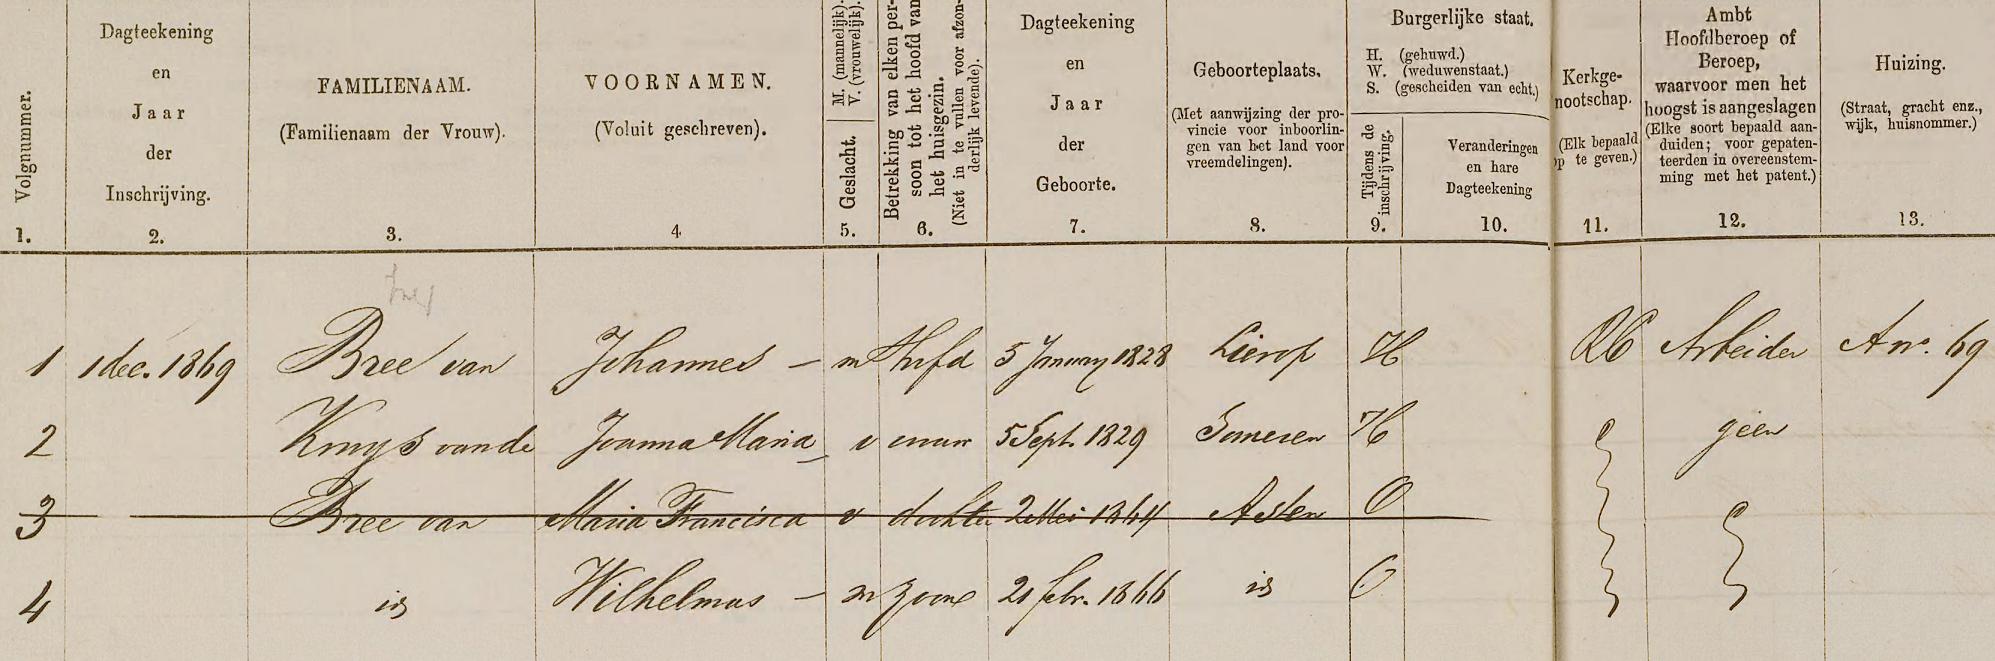 Volgnummer.
1.
Dagteekening
en
Jaar
der
Inschrijving.
2.
FAMILIENAAM.
(Familienaam der Vrouw).
3.
VOORNAMEN.
(Voluit geschreven).
4
M. (mannelijk).
V. (vrouwelijk).
Geslacht.
5.
Betrekking van elken per-
soon tot het hoofd van
het huisgezin.
(Niet in te vullen voor afzon-
derlijk levende).
6.
Dagteekening
en
Jaar
der
Geboorte.
7.
Geboorteplaats.
(Met aanwijzing der pro-
vincie voor inboorlin-
gen van het land voor
vreemdelingen).
8.
Burgerlijke staat.
H. (gehuwd.)
W. (weduwenstaat.)
S. (gescheiden van echt.)
Tijdens de
inschrijving.
9.
Veranderingen
en hare
Dagteekening
10.
Kerkge-
nootschap.
(Elk bepaald
op te geven.)
11.
Ambt
Hoofdberoep of
Beroep,
waarvoor men het
hoogst is aangeslagen
(Elke soort bepaald aan-
duiden; voor gepaten-
teerden in overeenstem-
ming met het patent.)
12.
Huizing.
(Straat, gracht enz.,
wijk, huisnommer.)
13.
1 1 dec. 1869 Bree van Johannes – m Hfd 5 January 1828 Lierop H RC Arbeider A no. 69
2 Kruys vande Joanna Maria v vrouw 5 Sept. 1829 Someren H geen
3 Bree van Maria Francisca v dochter 2 Mei 1864 Asten O
4 id Wilhelmus – m zoon 21 febr. 1866 id O